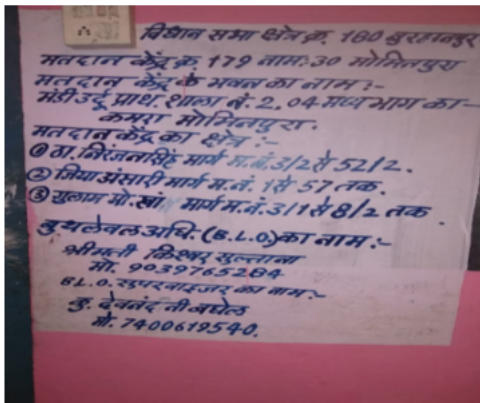 विधान सभा क्षेत्र क्र. 180 बुरहानपुर
मतदान केंद्र क्र. 179 नाम:30 मोमिनपुरा
मतदान केंद्र के भवन का नाम :-
मंडी उर्दू प्राथ. शाला नं. 2, 04 मध्य भाग का-
कमरा मोमिनपुरा.
मतदान केंद्र का क्षेत्र :-
① ठा. निरंजनसिंह मार्ग म.नं. 3/2 से 52/2.
② जिया अंसारी मार्ग म.नं. 1 से 57 तक.
③ गुलाम मो. खां मार्ग म.नं. 3/1 से 8/2 तक
बुथलेवल अधि.(B.L.O.) का नाम :-
श्रीमती किश्वर सुल्ताना
मो. 9039765284
B.L.O. सुपरवाइजर का नाम :-
कु. देवनंदनी बघेल
मो. 7400619540.